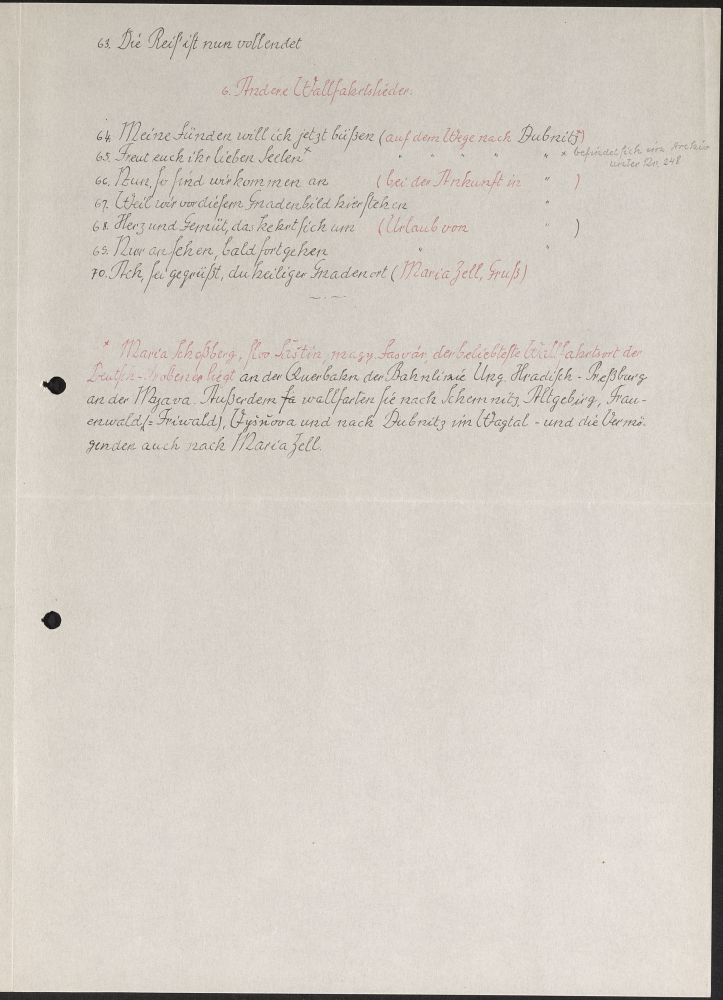 63. Die Reis' ist nun vollendet
6. Andere Wallfahrtslieder.
64. Meine Sünden will ich jetzt büßen (auf dem Wege nach Dubnitz)
65. Freut euch ihr lieben Seelen* " " " " " * befindet sich im Archiv
unter Nr. 248
66. Nun, so sind wir kommen an (bei der Ankunft in " )
67. Weil wir vor diesem Gnadenbild hier stehen "
68. Herz und Gemüt, das kehrt sich um (Urlaub von " )
69. Nur ansehen, bald fortgehen " "
70. Ach, sei gegrüßt, du heiliger Gnadenort (Maria Zell, Gruß)
* Maria Schoßberg, slov. Šaštín, magy. Sasvár, der beliebteste Wallfahrtsort der
Deutsch-Probener liegt an der Querbahn der Bahnlinie Ung. Hradisch - Preßburg
an der Myava. Außerdem fa wallfarten sie nach Schemnitz, Altgebirg, Frau-
enwald (= Friwald), Vyšňova und nach Dubnitz im Wagtal - und die Vermö-
genden auch nach Maria Zell.